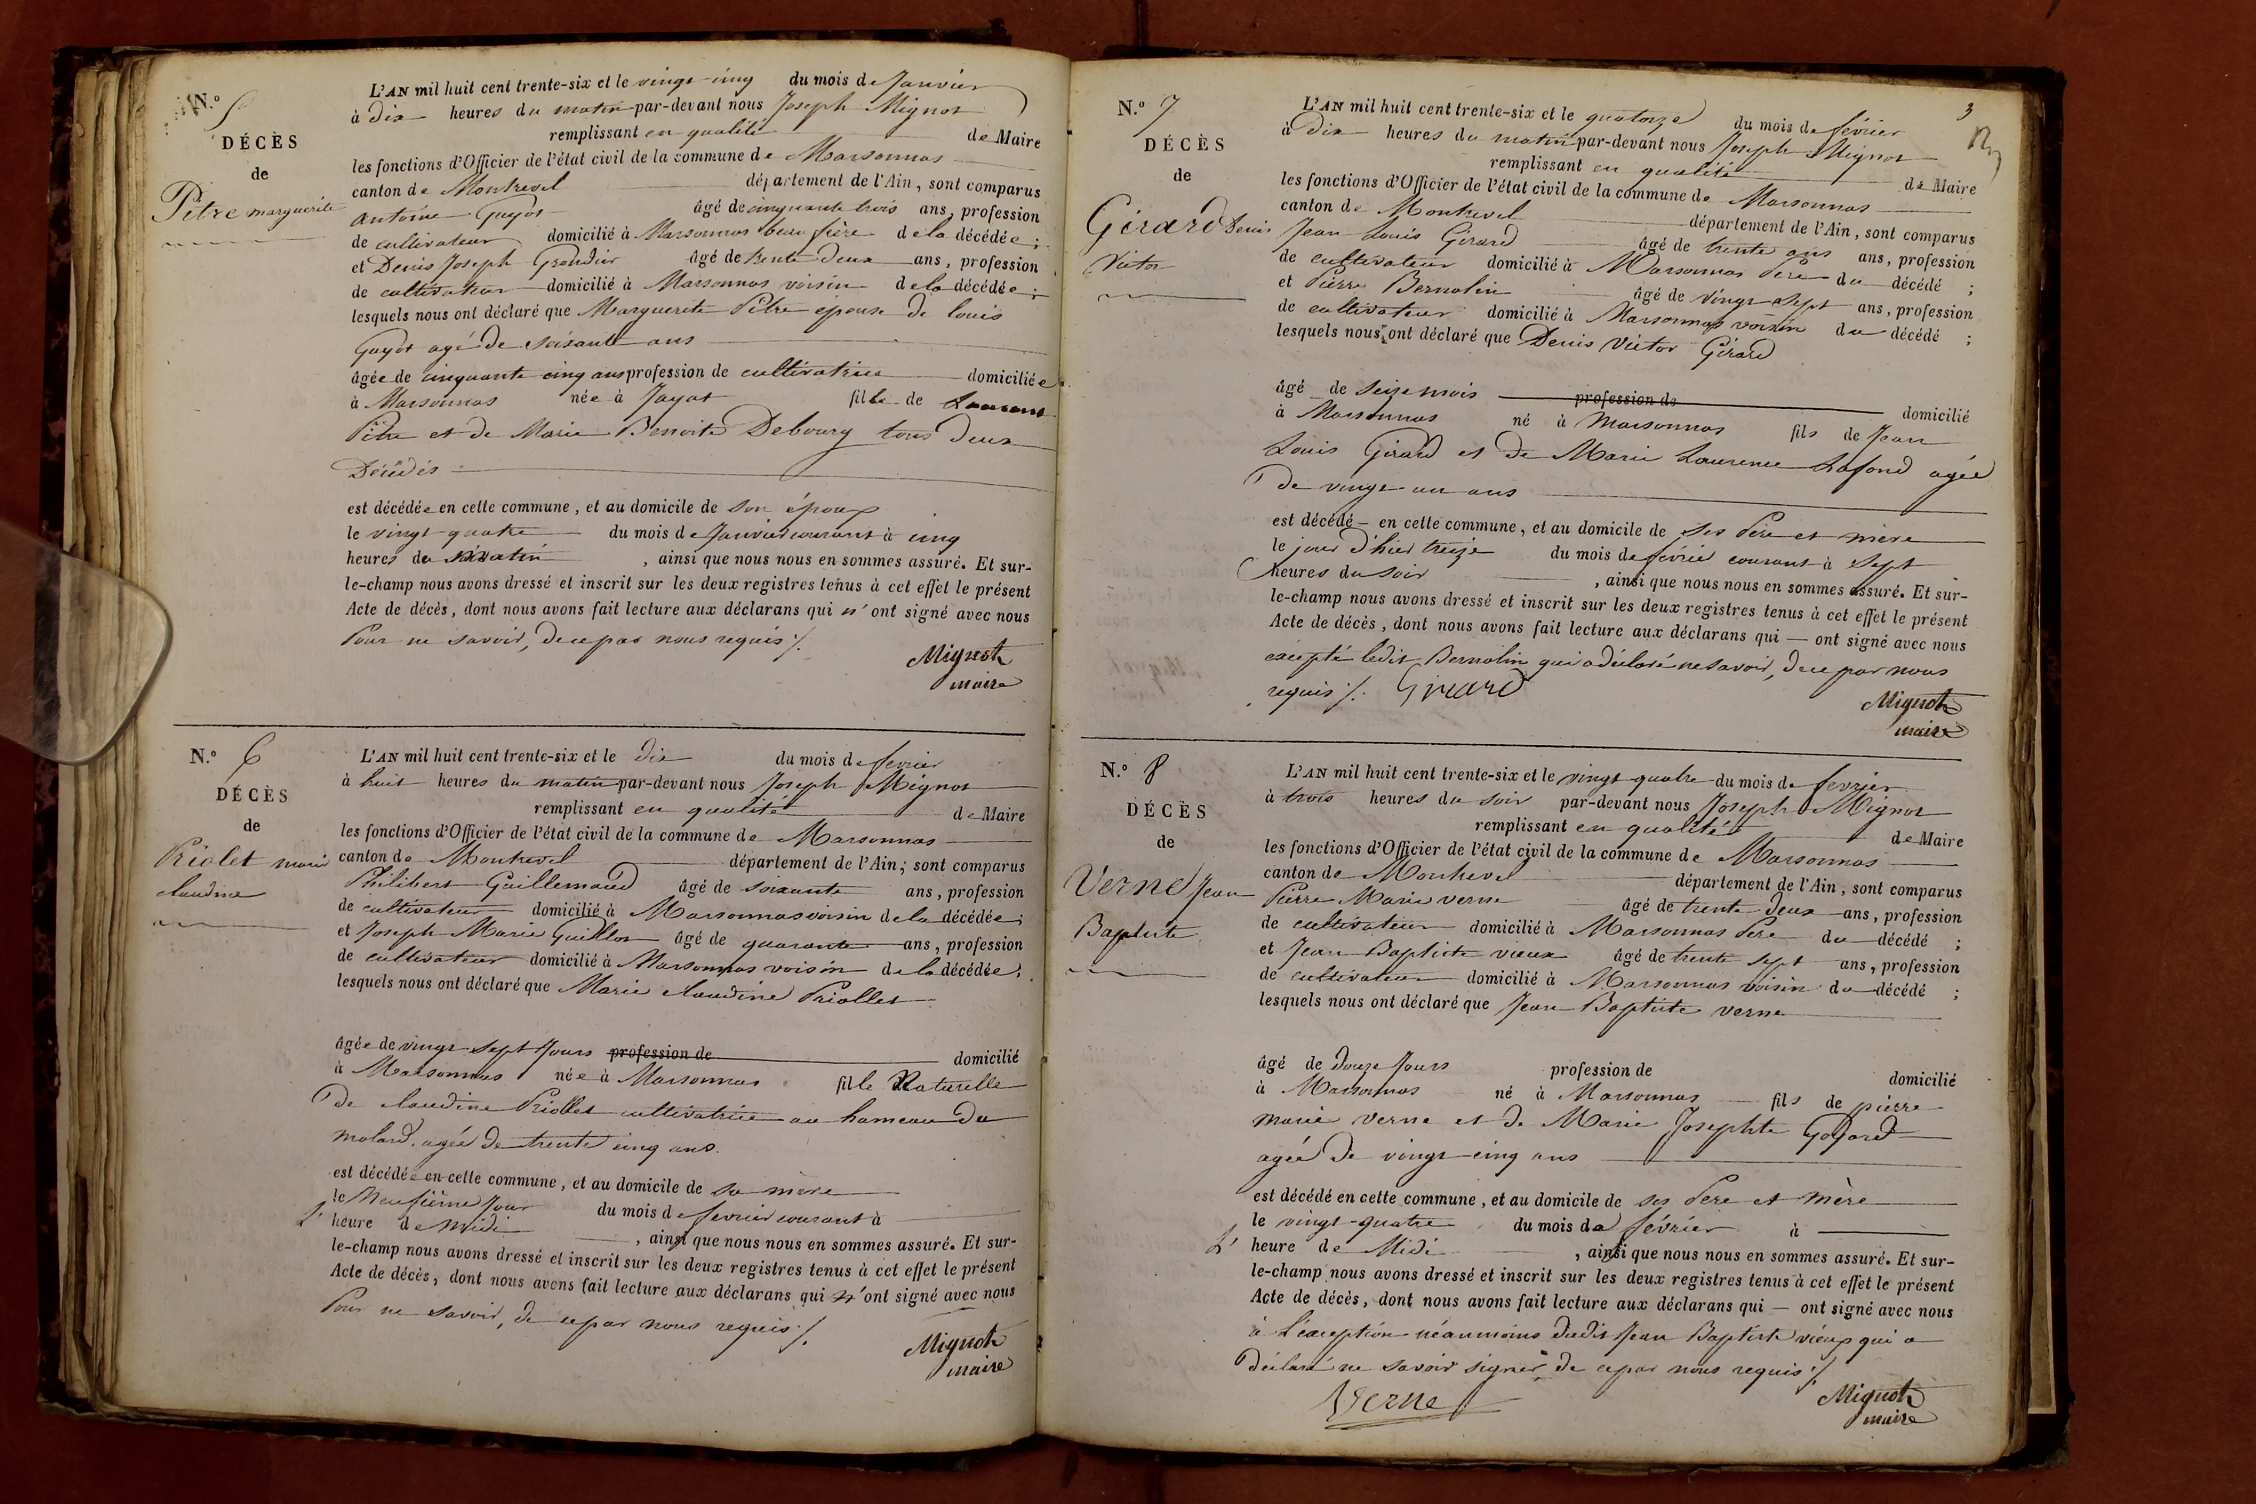 N.º 5
DÉCÈS
de
Pitre marguerite
L'AN mil huit cent trente-six et le vingt-cinq du mois de Janvier
à dix heures du matin par-devant nous Joseph Mignot
remplissant en qualité de Maire
les fonctions d'Officier de l'état civil de la commune de Marsonnas
canton de Montrevel département de l'Ain, sont comparus
antoine Guyot âgé de cinquante trois ans, profession
de cultivateur domicilié à Marsonnas beau frère de la décédée ;
et Denis Joseph âgé de trente deux ans, profession
de cultivateur domicilié à Marsonnas voisin de la décédée ;
lesquels nous ont déclaré que Marguerite Pitre épouse de louis
Guyot agé de soixante ans
âgée de cinquante cinq ans profession de cultivatrice domiciliée
à Marsonnas née à Jayat fille de Laurent
Pitre et de Marie Benoite Debourg tous deux
Décédés
est décédée en cette commune, et au domicile de son époux
le vingt quatre du mois de Janvier courant à cinq
heures du matin, ainsi que nous nous en sommes assuré. Et sur-
le-champ nous avons dressé et inscrit sur les deux registres tenus à cet effet le présent
Acte de décès, dont nous avons fait lecture aux déclarans qui n'ont signé avec nous
Pour ne savoir, de ce par nous requis ./.
Mignot
maire
N.º 6
DÉCÈS
de
Priolet marie
claudine
L'AN mil huit cent trente-six et le dix du mois de fevrier
à huit heures du matin par-devant nous Joseph Mignot
remplissant en qualité de Maire
les fonctions d'Officier de l'état civil de la commune de Marsonnas
canton de Montrevel département de l'Ain, sont comparus
Philibert Guillemaud âgé de soixante ans, profession
de cultivateur domicilié à Marsonnas voisin de la décédée ;
et Joseph Marie Guillot âgé de quarante ans, profession
de cultivateur domicilié à Marsonnas voisin de la décédée ;
lesquels nous ont déclaré que Marie claudine Priollet
âgée de vingt sept Jours profession de domicilié
à Marsonnas née à Marsonnas fille Naturelle
de claudine Priollet cultivatrice au hameau du
molard agée de trente cinq ans.
est décédée en cette commune, et au domicile de sa mère
le Neufième Jour du mois de fevrier courant à
L' heure de Midi, ainsi que nous nous en sommes assuré. Et sur-
le-champ nous avons dressé et inscrit sur les deux registres tenus à cet effet le présent
Acte de décès, dont nous avons fait lecture aux déclarans qui n'ont signé avec nous
Pour ne savoir, de ce par nous requis ./.
Mignot
maire
3
N.º 7
DÉCÈS
de
Girard Denis
Victor
L'AN mil huit cent trente-six et le quatorze du mois de février
à dix heures du matin par-devant nous Joseph Mignot
remplissant en qualité de Maire
les fonctions d'Officier de l'état civil de la commune de Marsonnas
canton de Montrevel département de l'Ain, sont comparus
Jean Louis Girard âgé de trente ans ans, profession
de cultivateur domicilié à Marsonnas Père du décédé ;
et Pierre Bernolin âgé de vingt sept ans, profession
de cultivateur domicilié à Marsonnas voisin du décédé ;
lesquels nous ont déclaré que Denis Victor Girard
âgé de seize mois profession de domicilié
à Marsonnas né à Marsonnas fils de Jean
Louis Girard et de Marie Laurence Lafond agée
de vingt-un ans
est décédé en cette commune, et au domicile de ses Père et mère
le jour d'hier treize du mois de février courant à sept
heures du soir, ainsi que nous nous en sommes assuré. Et sur-
le-champ nous avons dressé et inscrit sur les deux registres tenus à cet effet le présent
Acte de décès, dont nous avons fait lecture aux déclarans qui — ont signé avec nous
excepté ledit Bernolin qui a déclaré ne savoir, de ce par nous
requis ./. Girard
Mignot
maire
N.º 8
DÉCÈS
de
Verne Jean
Baptiste
L'AN mil huit cent trente-six et le vingt quatre du mois de fevrier
à trois heures du soir par-devant nous Joseph Mignot
remplissant en qualité de Maire
les fonctions d'Officier de l'état civil de la commune de Marsonnas
canton de Montrevel département de l'Ain, sont comparus
Pierre Marie verne âgé de trente deux ans, profession
de cultivateur domicilié à Marsonnas Père du décédé ;
et Jean Baptiste vieux âgé de trente sept ans, profession
de cultivateur domicilié à Marsonnas voisin du décédé ;
lesquels nous ont déclaré que Jean Baptiste verne
âgé de douze Jours profession de domicilié
à Marsonnas né à Marsonnas fils de pierre
marie verne et de Marie Josephte Goyard
agée de vingt-cinq ans
est décédé en cette commune, et au domicile de ses Père et mère
le vingt-quatre du mois de février à
L' heure de Midi, ainsi que nous nous en sommes assuré. Et sur-
le-champ nous avons dressé et inscrit sur les deux registres tenus à cet effet le présent
Acte de décès, dont nous avons fait lecture aux déclarans qui — ont signé avec nous
à l'exception néanmoins dudit Jean Baptiste vieux qui a
déclaré ne savoir signer, de ce par nous requis ./.
Verne
Mignot
maire